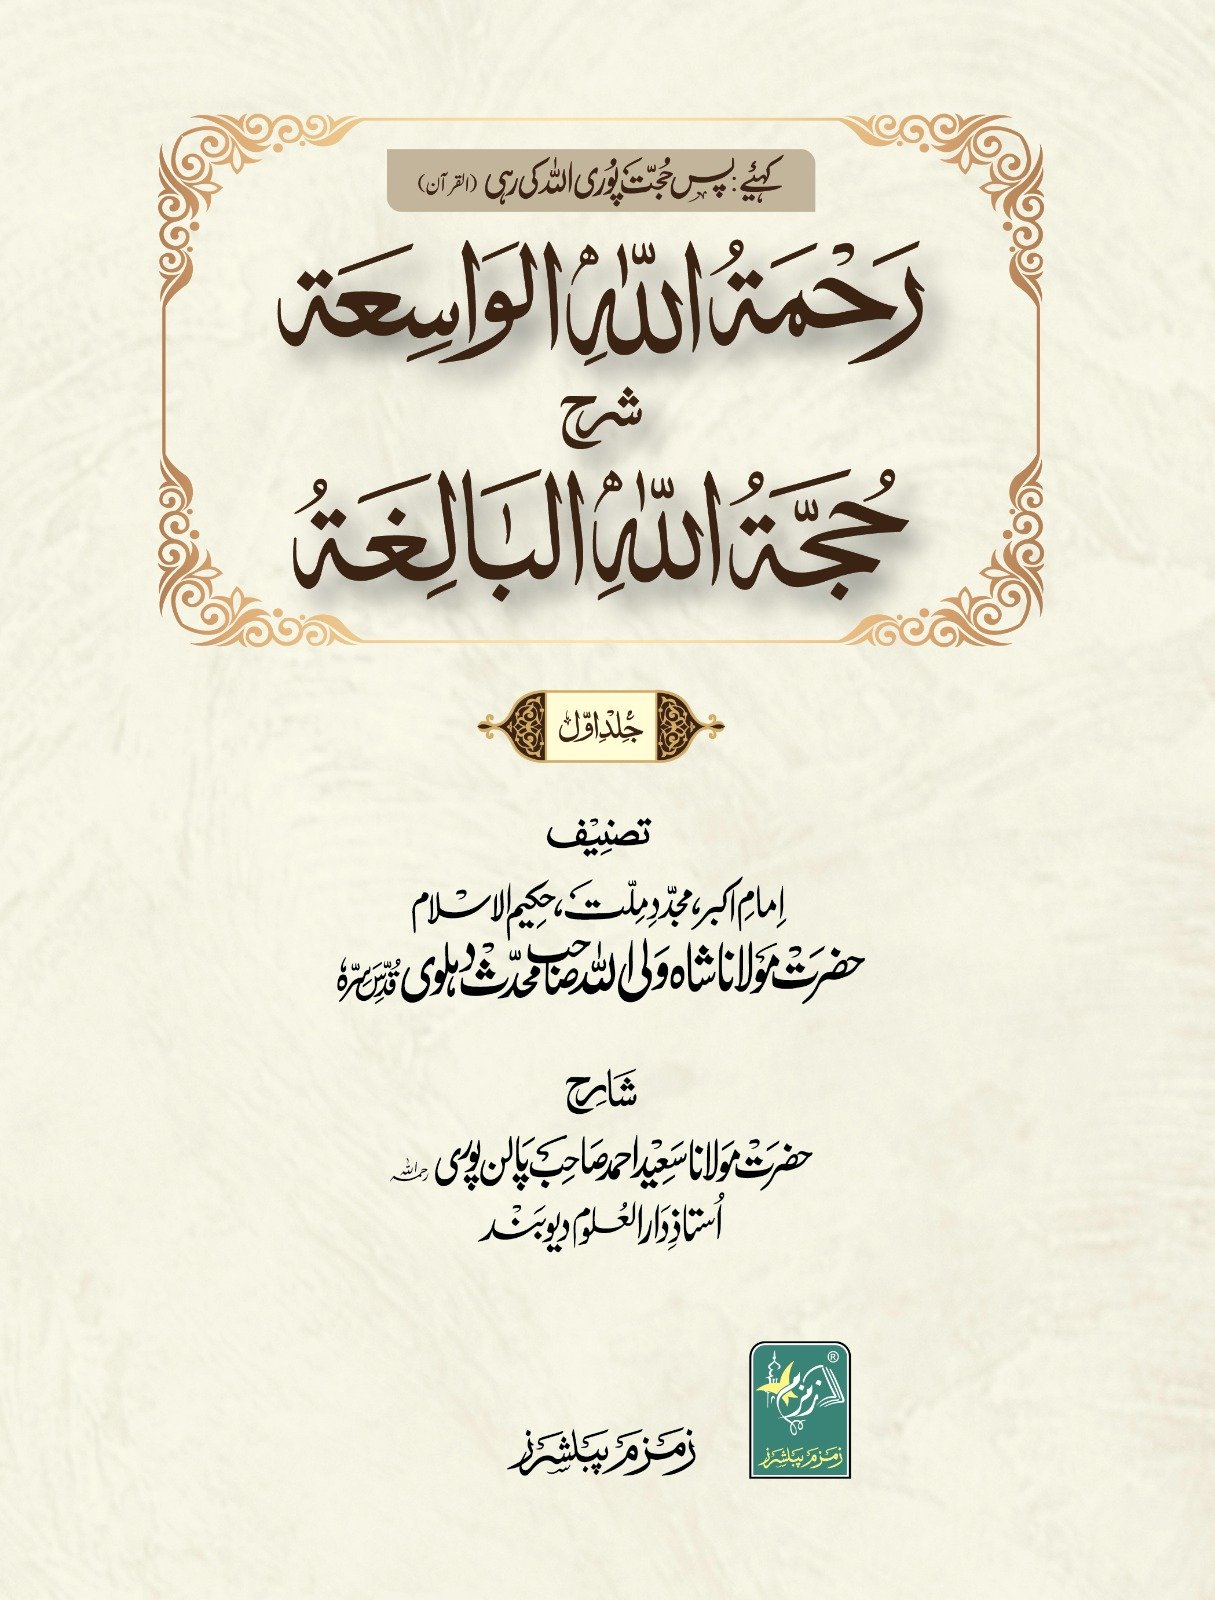 کہئیے: پس حُجّت پُوری اللہ کی رہی (القرآن)
رَحْمَةُ اللّٰهِ الوَاسِعَة
شرح
حُجَّةُ اللّٰهِ البَالِغَةُ
جُلدِ اوّل
تصنِیف
اِمامِ اکبر، مجدّدِ مِلّت، حکِیم الاسلام
حضرَت مَولانا شاہ وَلی اللہ صَاحب محدّث دہلوی قُدِّسَ سِرّہٗ
شَارِح
حضرَت مَولانا سَعِید احمد صَاحِب پَالن پوری رحمہ اللہ
اُستاذِ دَار العُلوم دیوبَند
زمزم
®
زمزم پبلشرز
زمَزمَ پبَلشرَز